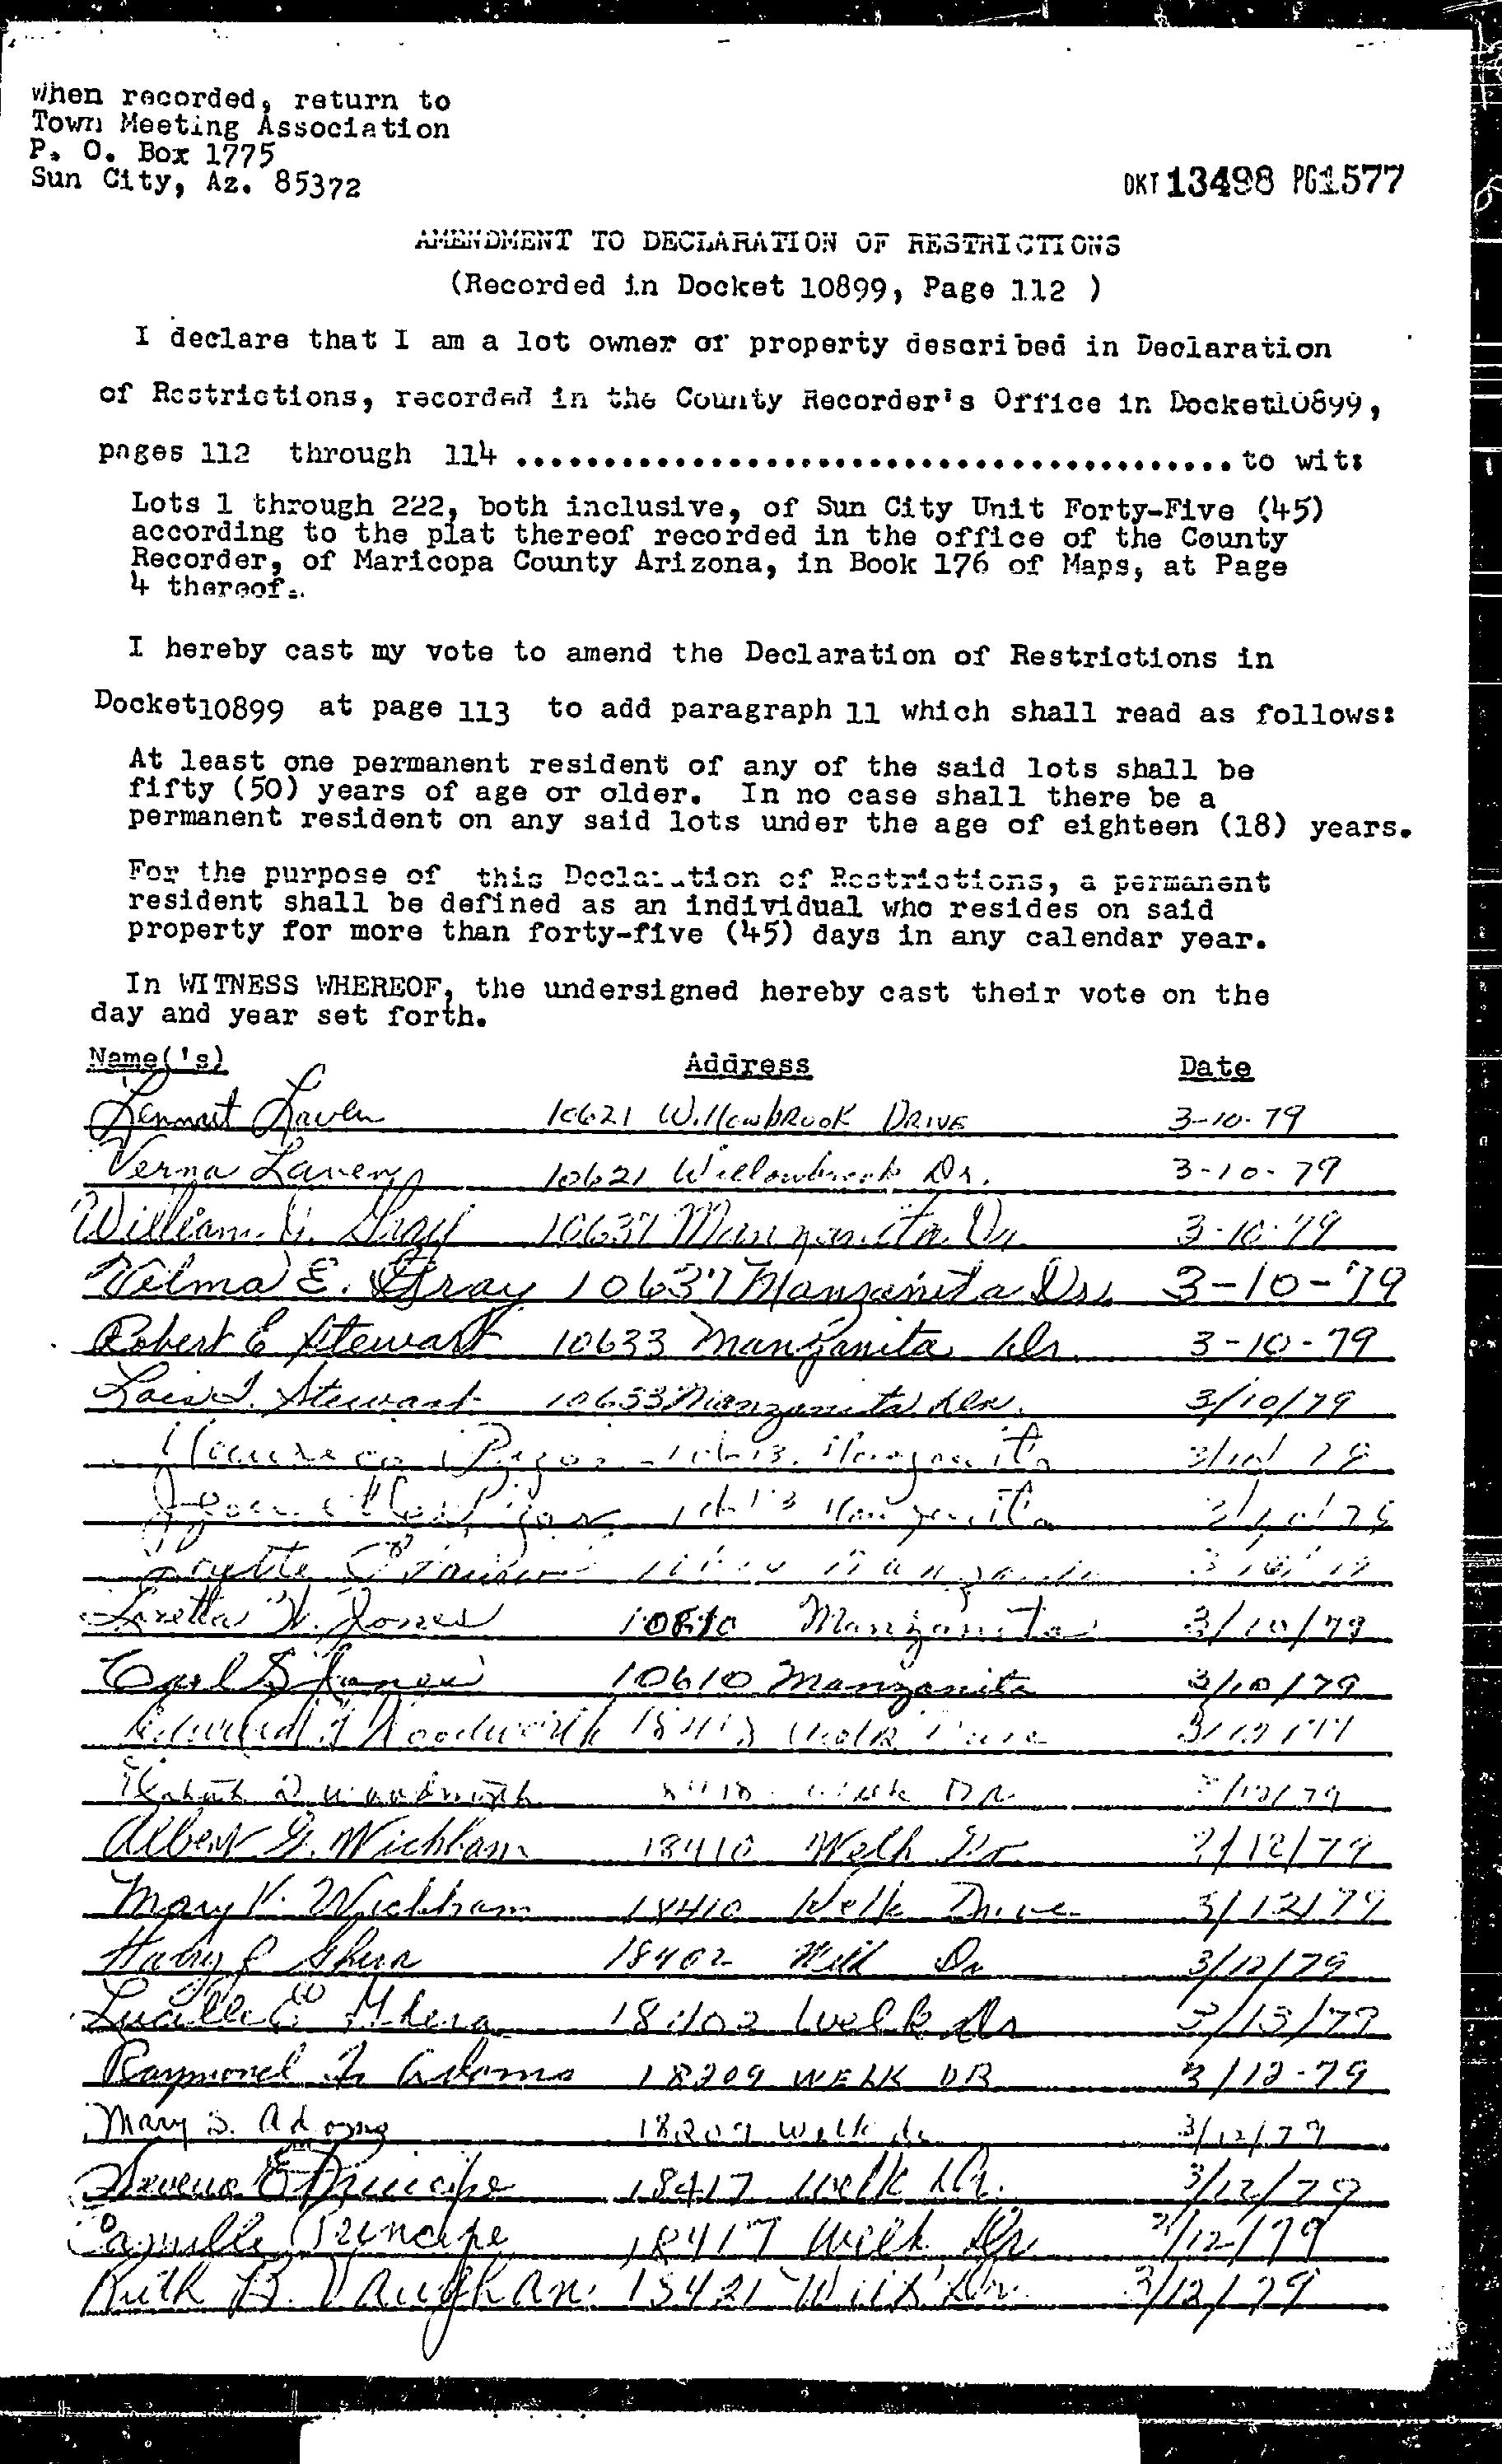 When recorded, return to
Town Meeting Association
P. O. Box 1775
Sun City, Az. 85372
DKT 13498 PG 1577
AMENDMENT TO DECLARATION OF RESTRICTIONS
(Recorded in Docket 10899, Page 112 )
I declare that I am a lot owner of property described in Declaration
of Restrictions, recorded in the County Recorder's Office in Docket10899,
pages 112 through 114 ......................................... to wit:
Lots 1 through 222, both inclusive, of Sun City Unit Forty-Five (45)
according to the plat thereof recorded in the office of the County
Recorder, of Maricopa County Arizona, in Book 176 of Maps, at Page
4 thereof.
I hereby cast my vote to amend the Declaration of Restrictions in
Docket10899 at page 113 to add paragraph 11 which shall read as follows:
At least one permanent resident of any of the said lots shall be
fifty (50) years of age or older. In no case shall there be a
permanent resident on any said lots under the age of eighteen (18) years.
For the purpose of this Declaration of Restrictions, a permanent
resident shall be defined as an individual who resides on said
property for more than forty-five (45) days in any calendar year.
In WITNESS WHEREOF, the undersigned hereby cast their vote on the
day and year set forth.
Name('s) Address Date
Lennart Laven 10621 Willowbrook DRIVE 3-10-79
Verna Laven 10621 Willowbrook Dr. 3-10-79
William Gray 10637 Manzanita Dr. 3-10-79
Velma E. Gray 10637 Manzanita Dr. 3-10-79
Robert E Stewart 10633 Manzanita Dr. 3-10-79
Lois Stewart 10633 Manzanita Dr. 3/10/79
Manzanita
Manzanita
Loretta W. Jones Manzanita 3/10/79
Carl S Jones 10610 Manzanita 3/10/79
Woodworth
Woodworth DR 3/12/79
Albert G. Wickham 18410 Welk Dr 3/12/79
Mary K. Wickham 18410 Welk Drive 3/12/79
Harry 18402 Welk Dr 3/12/79
Lucille 18402 Welk Dr 3/13/79
Raymond Adams 18209 WELK DR 3/12-79
Mary S. Adams 18209 Welk dr 3/12/79
Principe 18417 Welk Dr. 3/12/79
Camille Principe 18417 Welk Dr 3/12/79
Ruth B. Vaughan 18421 Welk Dr. 3/12/79